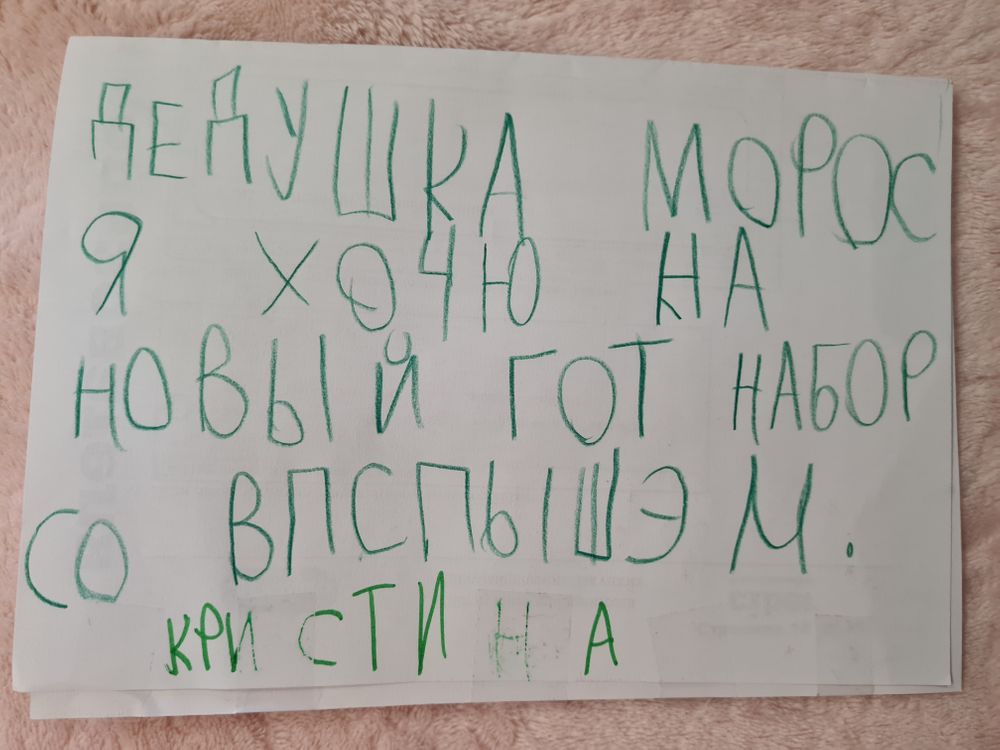 ДЕДУШКА МОРОС
Я ХОЧЮ НА
НОВЫЙ ГОТ НАБОР
СО ВПСПЫШЭМ.
КРИСТИНА